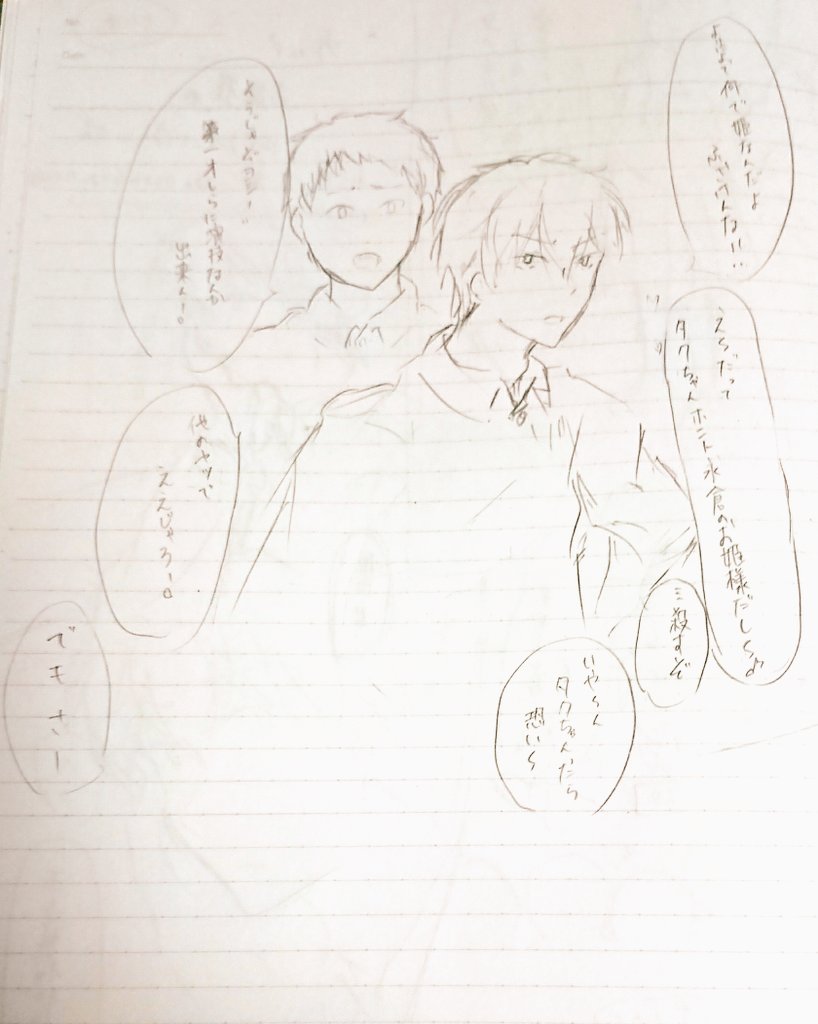 何で姫なんだよ
ふざけんない…
えぇだって
タクちゃんホント、氷倉のお姫様だしぃ♪
ミ殺すぞ
いや〜ん
タクちゃんたら
恐い〜
そうじゃぞヨシー…
第一オレらに演技なんか
出来ん!。
他のヤツで
ええじゃろー。
でもさー